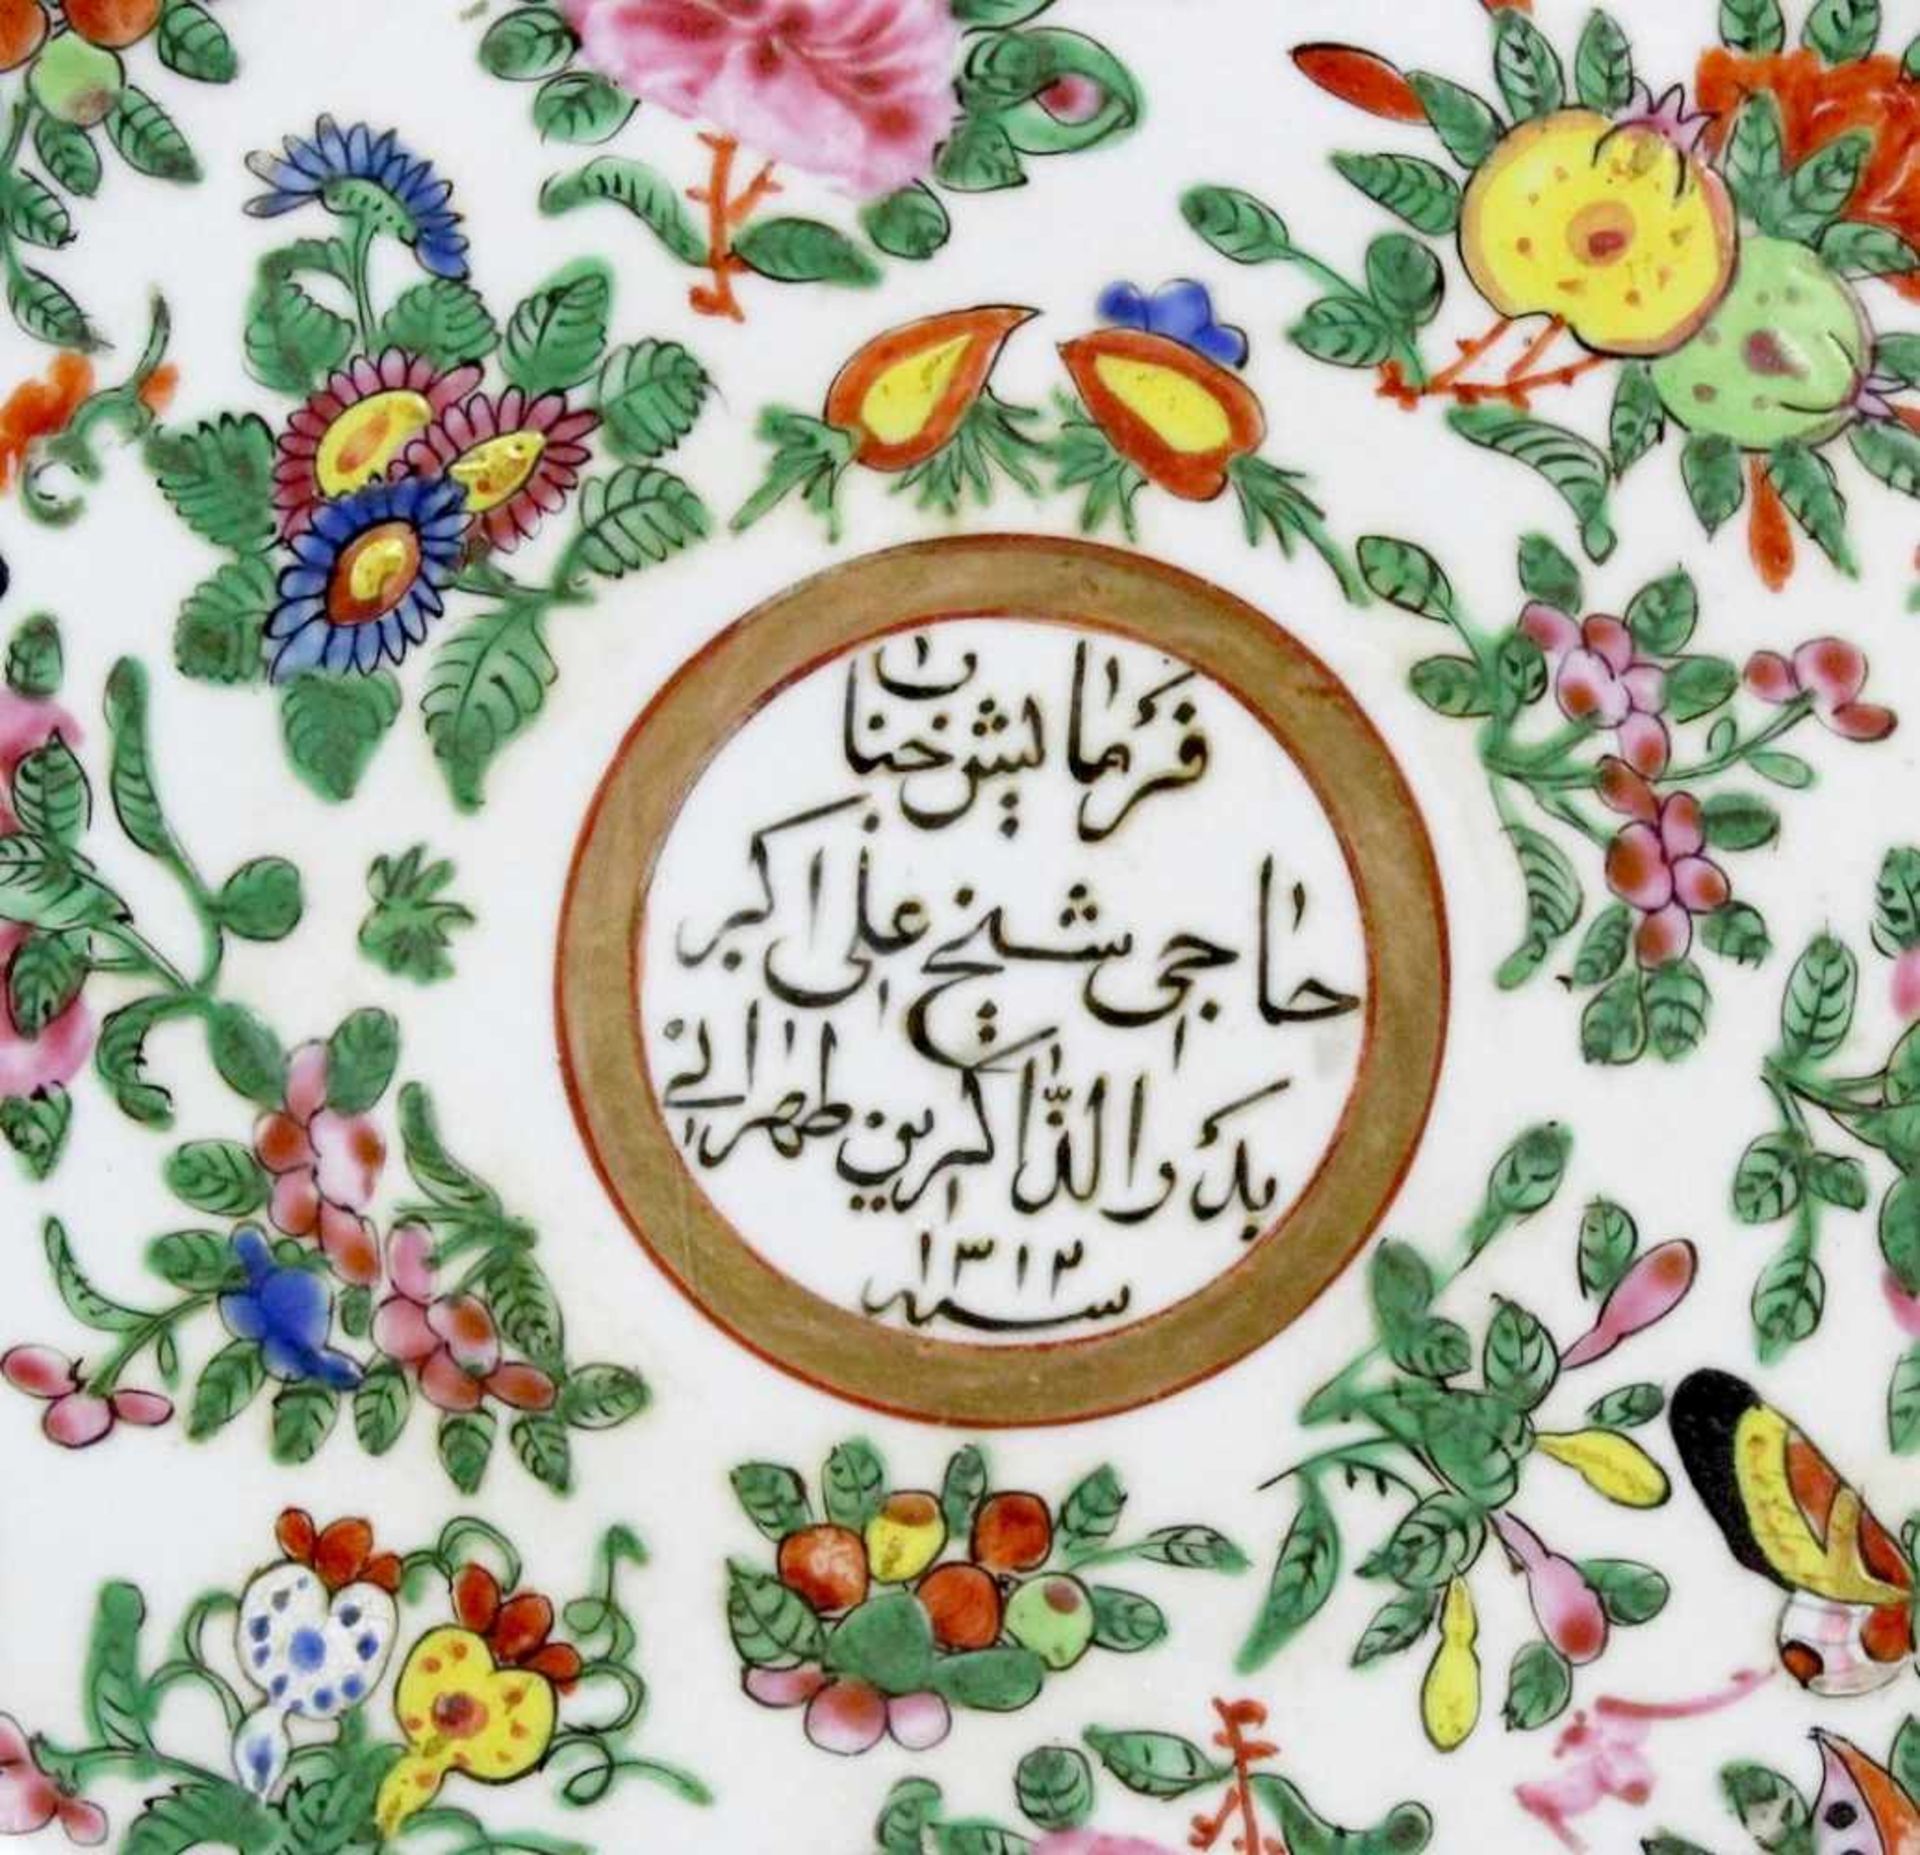 فرمایش جناب
حاجی شیخ علی اکبر
بدر الذاکرین طهرانی
سنه ۱۳۱۲